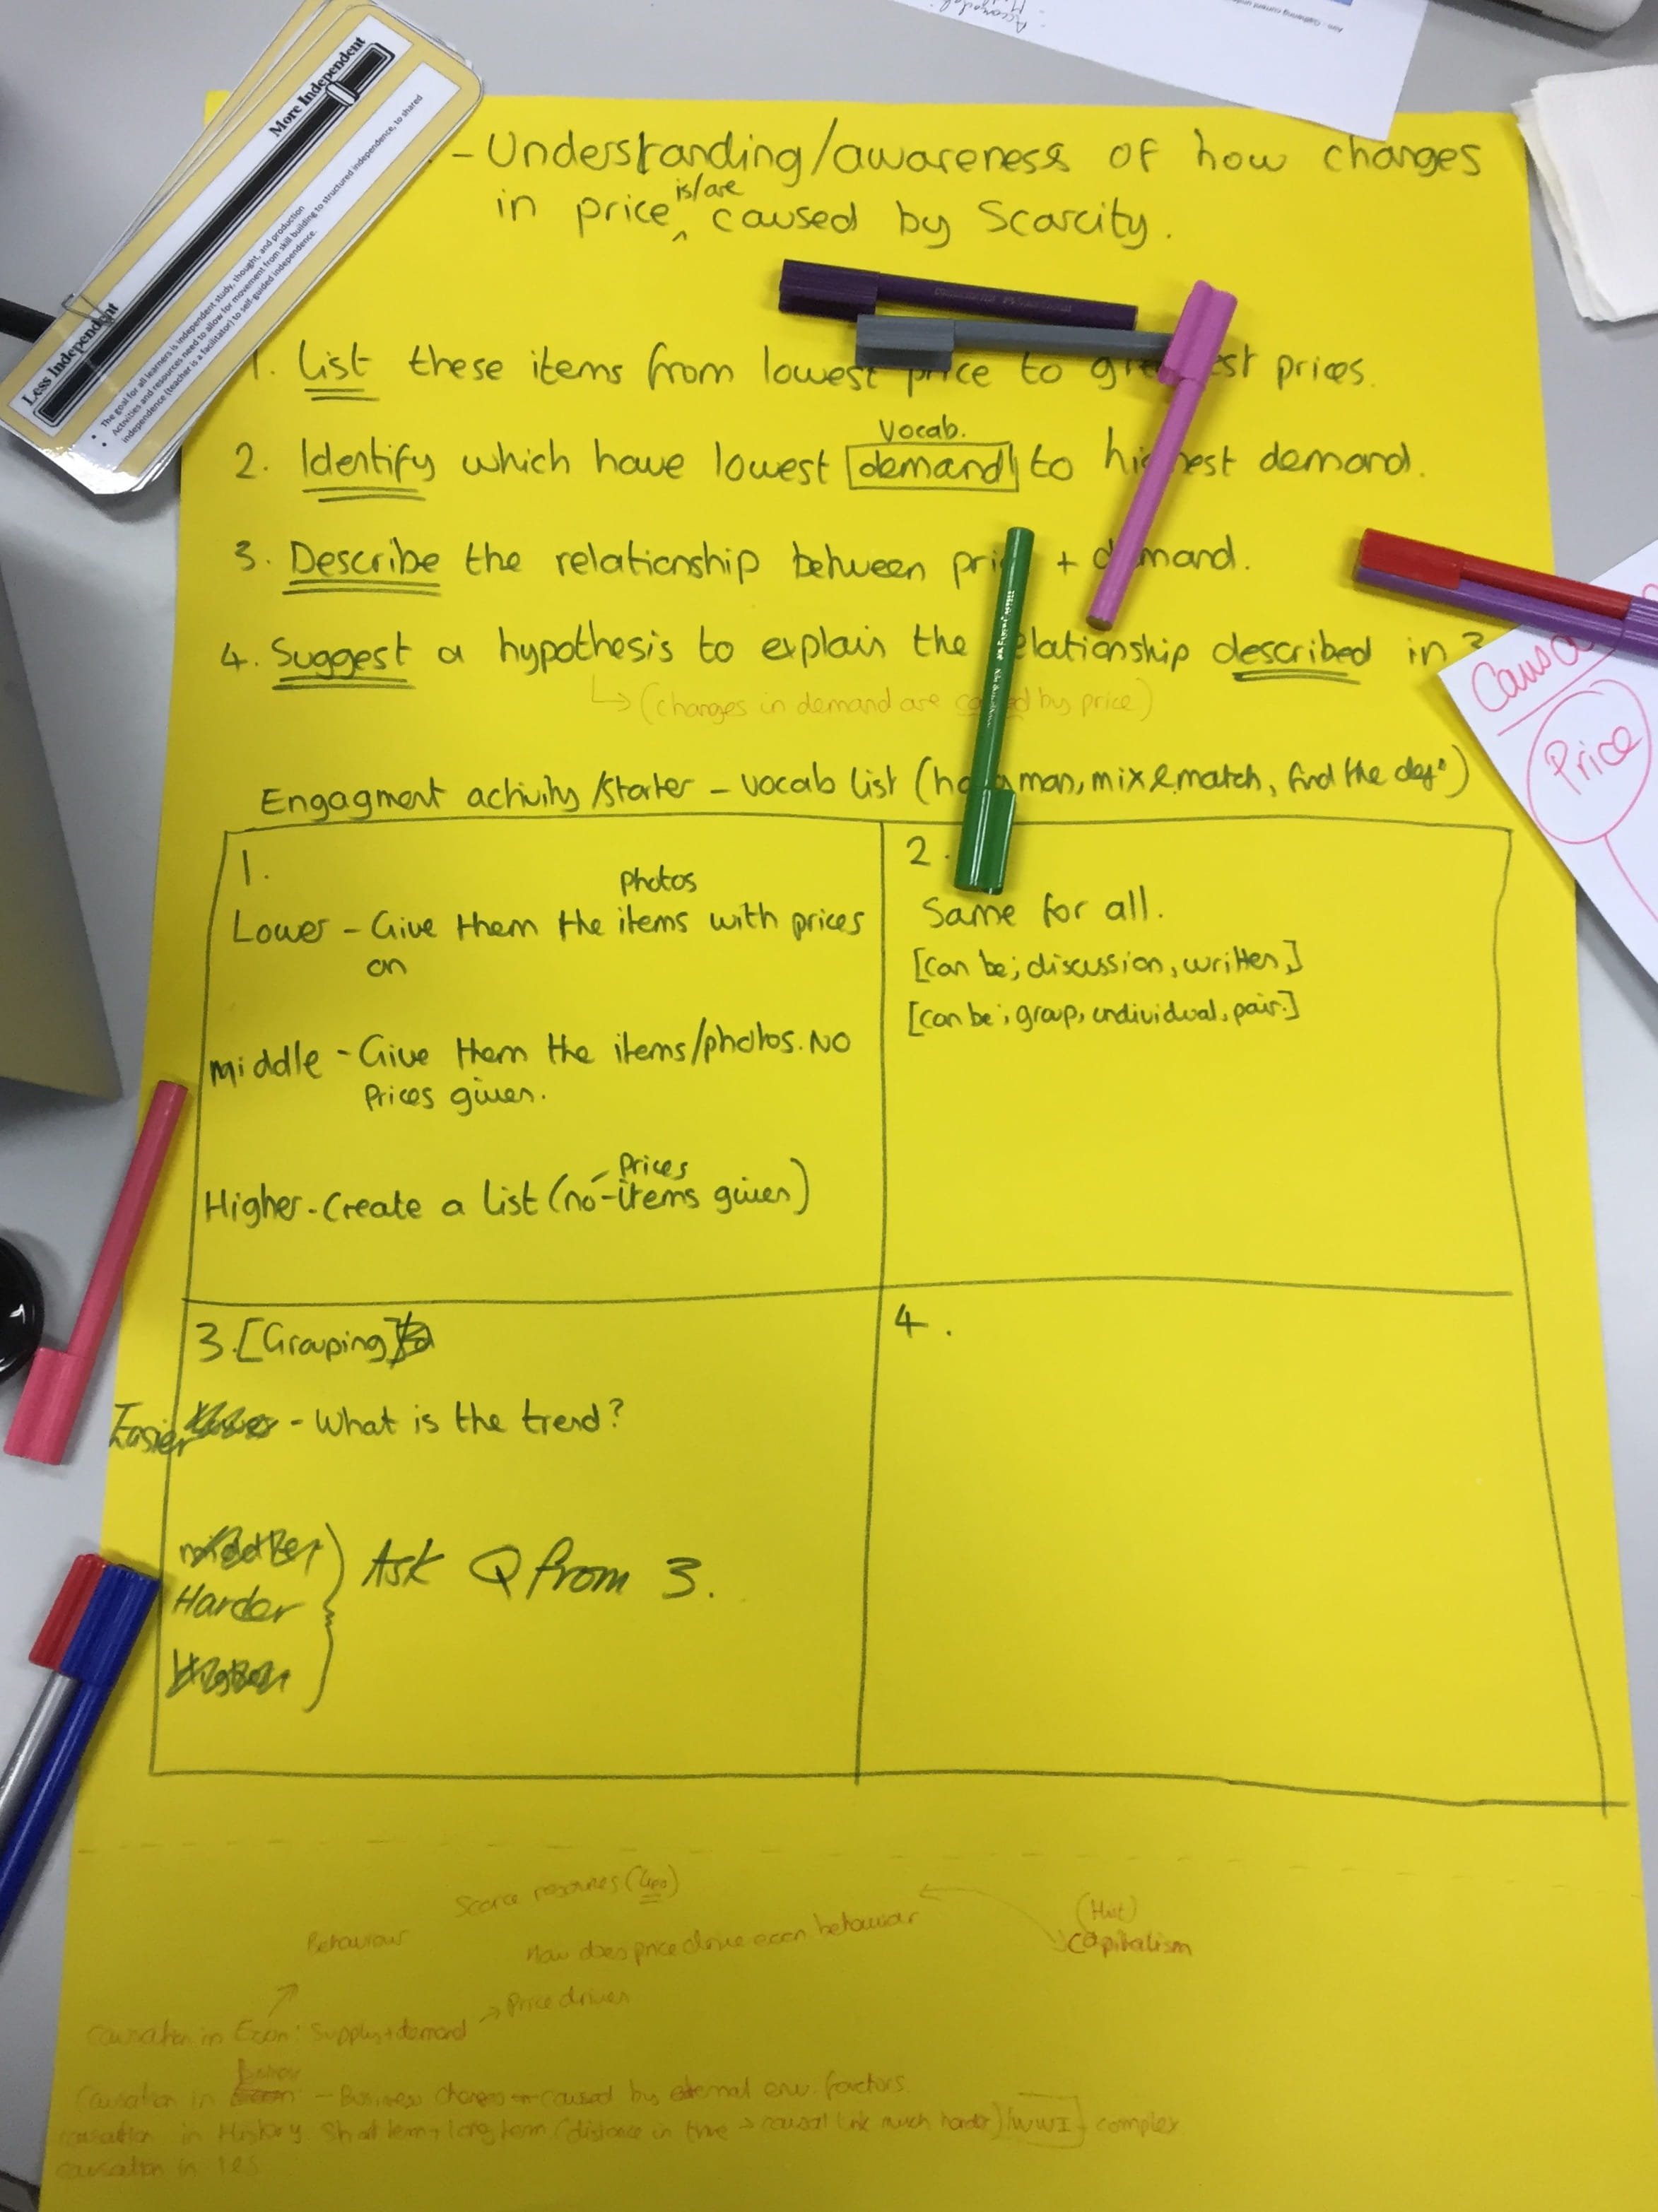 More Independent
Less Independent
The goal for all learners is independent study, thought, and production
Activities and resources need to allow for movement from skill building to structured independence, to shared
independence (teacher is a facilitator) to self-guided independence.
- Understanding/awareness of how changes
is/are
in price caused by Scarcity.
1. List these items from lowest price to greatest prices.
Vocab.
2. Identify which have lowest demand to highest demand.
3. Describe the relationship between price + demand.
4. Suggest a hypothesis to explain the relationship described in 3
(changes in demand are caused by price)
Engagment activity/starter - vocab list (hangman, mix & match, find the defⁿ)
1.
Photos
Lower - Give them the items with prices
on
Middle - Give them the items/photos. No
Prices given.
Prices
Higher - Create a list (no items given)
2.
Same for all.
[can be; discussion, written,]
[can be; group, individual, pair.]
3. [Grouping]
Easier - What is the trend?
Harder
Ask Q from 3.
4.
Causa
Price
Scarce resources (Geo)
Behaviour
How does price drive econ behaviour
(Hist)
Capitalism
Price driven
Causation in Econ: Supply + demand
Causation in - Business changes caused by external env. factors
causation in History. Short term + long term (distance in time → causal link much harder) WWI - complex
causation in